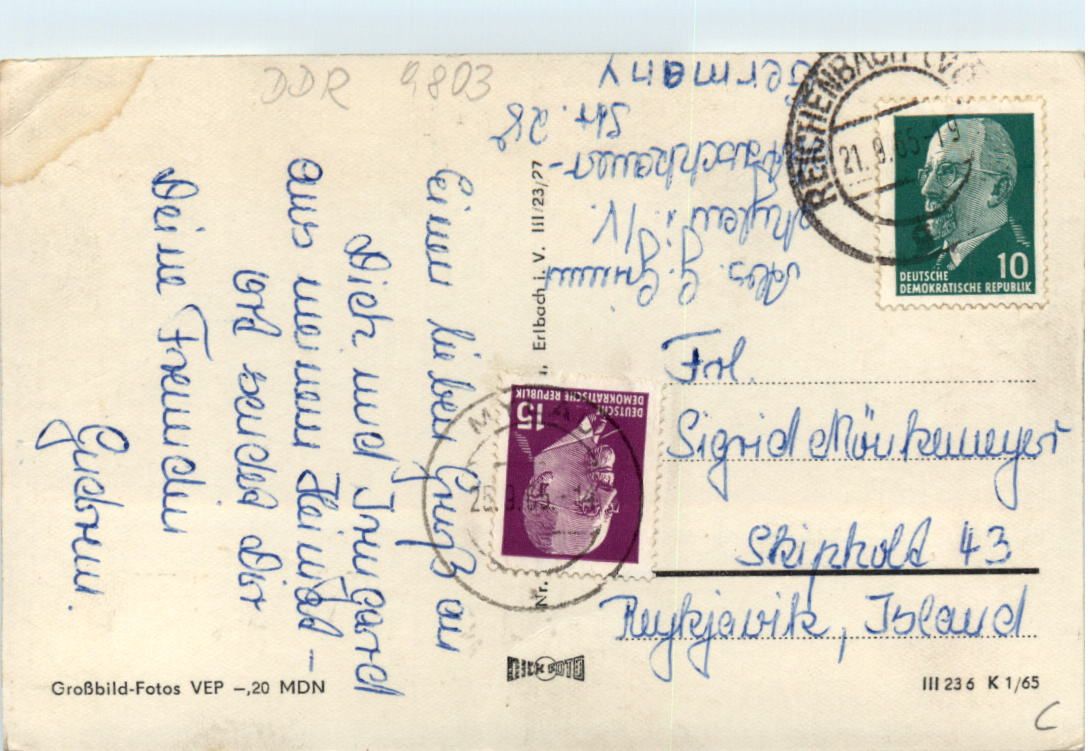 DDR 9803
Einen lieben Gruß an
Dich und Irmgard
aus meinem Heimat-
ort sendet Dir
Deine Freundin
Gudrun.
Abs. G. Grimm
i./V.
Str. 28
Germany
REICHENBACH (V
21.9.65-19
DEUTSCHE
DEMOKRATISCHE REPUBLIK
10
Frl.
Sigrid Mönkemeyer
Skiphold 43
Reykjavik, Island
DEUTSCHE
DEMOKRATISCHE REPUBLIK
15
.9.65.-14
Erlbach i. V. III/23/77
Nr.
Großbild-Fotos VEP –,20 MDN
III 23 6 K 1/65
C